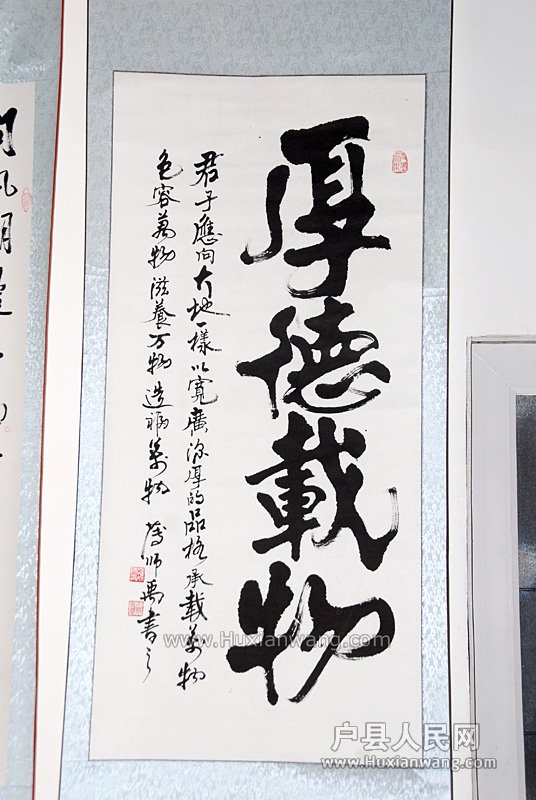 厚德载物
君子應向大地一樣以寬廣深厚的品格承载萬物
包容萬物滋養万物造福萬物 師禹書之
www.Huxianwang.com
户县人民网
www.Huxianwang.com